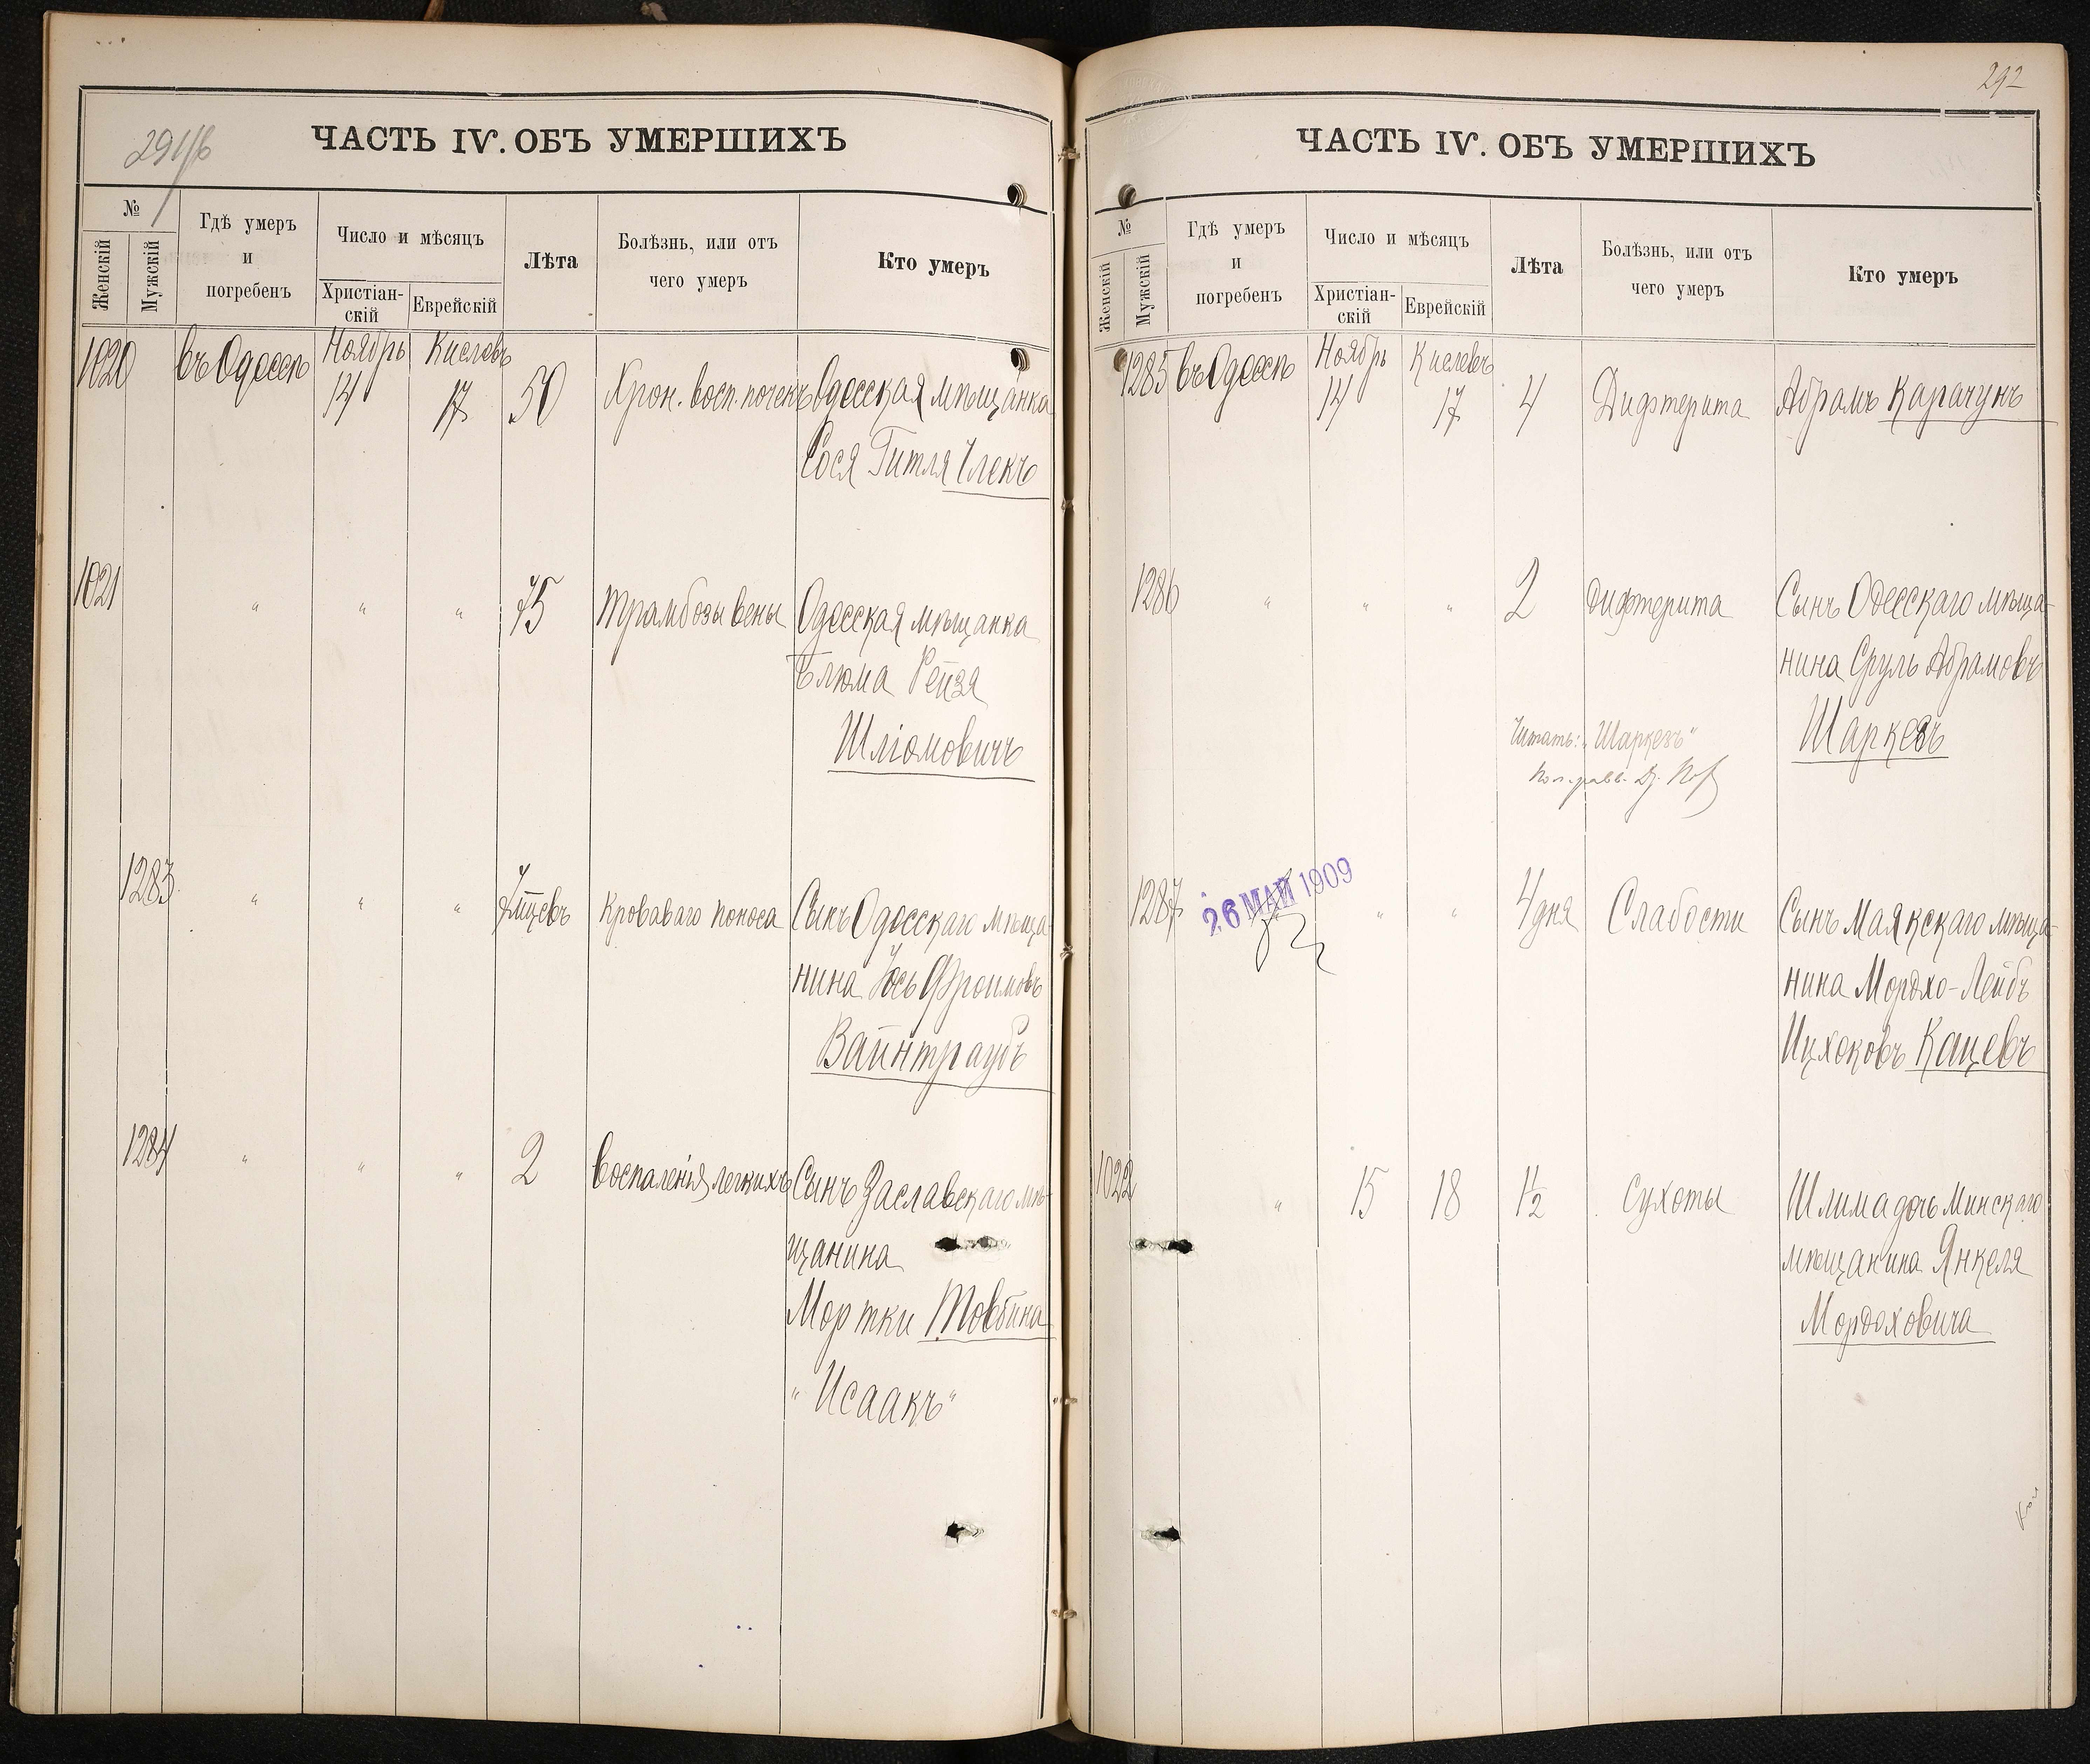 291/об
ЧАСТЬ IV. ОБЪ УМЕРШИХЪ
№
Женскій
Мужскій
Гдѣ умеръ
и
погребенъ
Число и мѣсяцъ
Христіан-
скій
Еврейскій
Лѣта
Болѣзнь, или отъ
чего умеръ
Кто умеръ
1020 въ Одессѣ Ноябрь 14 Кислевъ 17 50 Хрон. восп. почекъ Одесская мѣщанка
Сося Гитля Члекъ
1021 " " " 75 Трамбозы вены Одесская мѣщанка
Блюма Рейзя
Шліомовичъ
1283 " " " 7 мцевъ Кроваваго поноса Сынъ Одесскаго мѣща-
нина Іось Фроимовъ
Вайнтраубъ
1284 " " " 2 Воспаленія легкихъ Сынъ Заславскаго мѣ-
щанина
Мортки Товбина
"Исаакъ"
292
ЧАСТЬ IV. ОБЪ УМЕРШИХЪ
№
Женскій
Мужскій
Гдѣ умеръ
и
погребенъ
Число и мѣсяцъ
Христіан-
скій
Еврейскій
Лѣта
Болѣзнь, или отъ
чего умеръ
Кто умеръ
1285 въ Одессѣ Ноябрь 14 Кислевъ 17 4 Дифтерита Абрамъ Карачунъ
1286 " " " 2 Дифтерита Сынъ Одесскаго мѣща-
нина Сруль Абрамовъ
Шаркезъ
Читать: "Шаркезъ"
1287 26 МАЙ 1909 " " 4 дня Слабости Сынъ Маякскаго мѣща-
нина Мордхо-Лейбъ
Ицхоковъ Кацевъ
1022 " 15 18 1½ Сухоты Шлима дочь Минскаго
мѣщанина Янкеля
Мордоховича